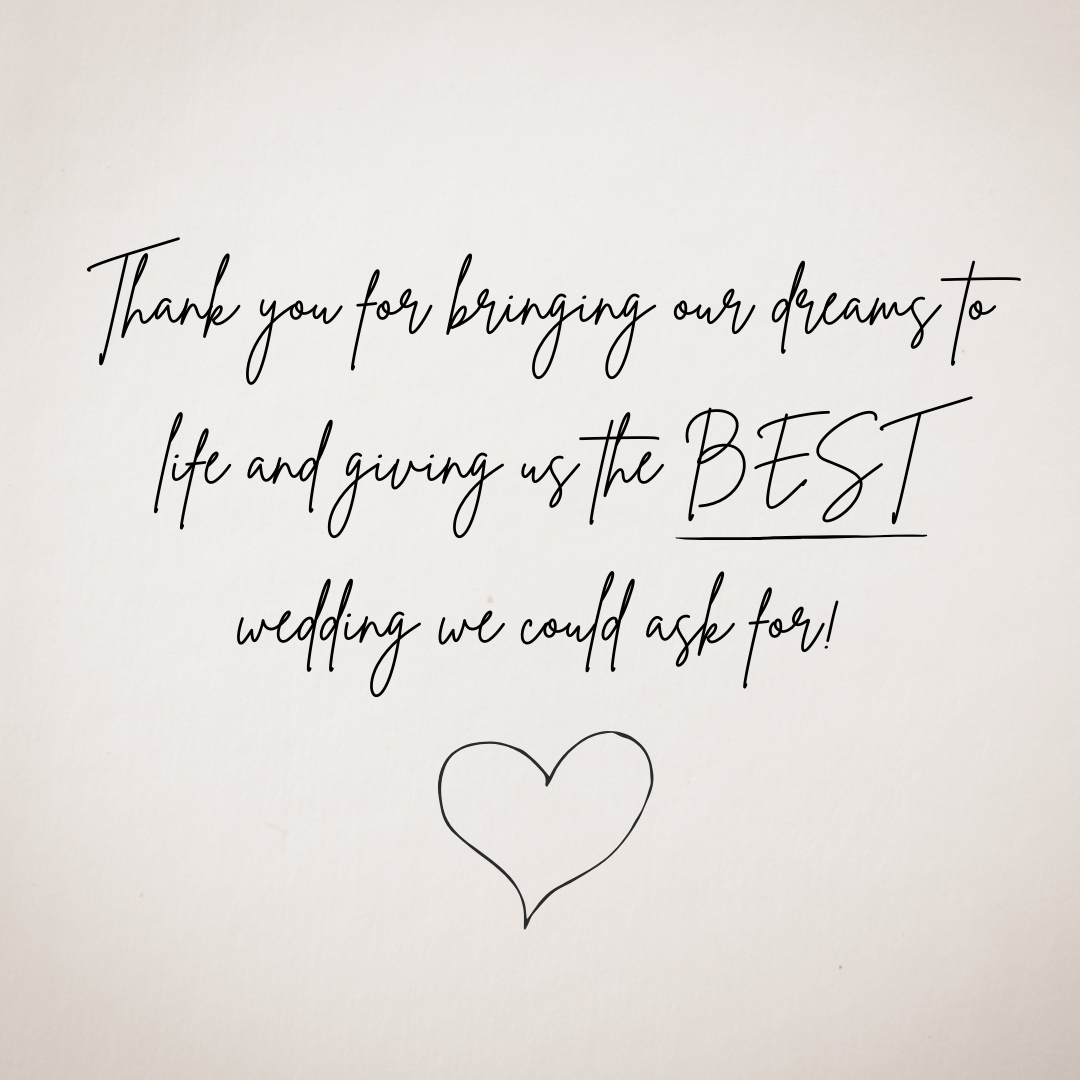 Thank you for bringing our dreams to
life and giving us the BEST
wedding we could ask for!